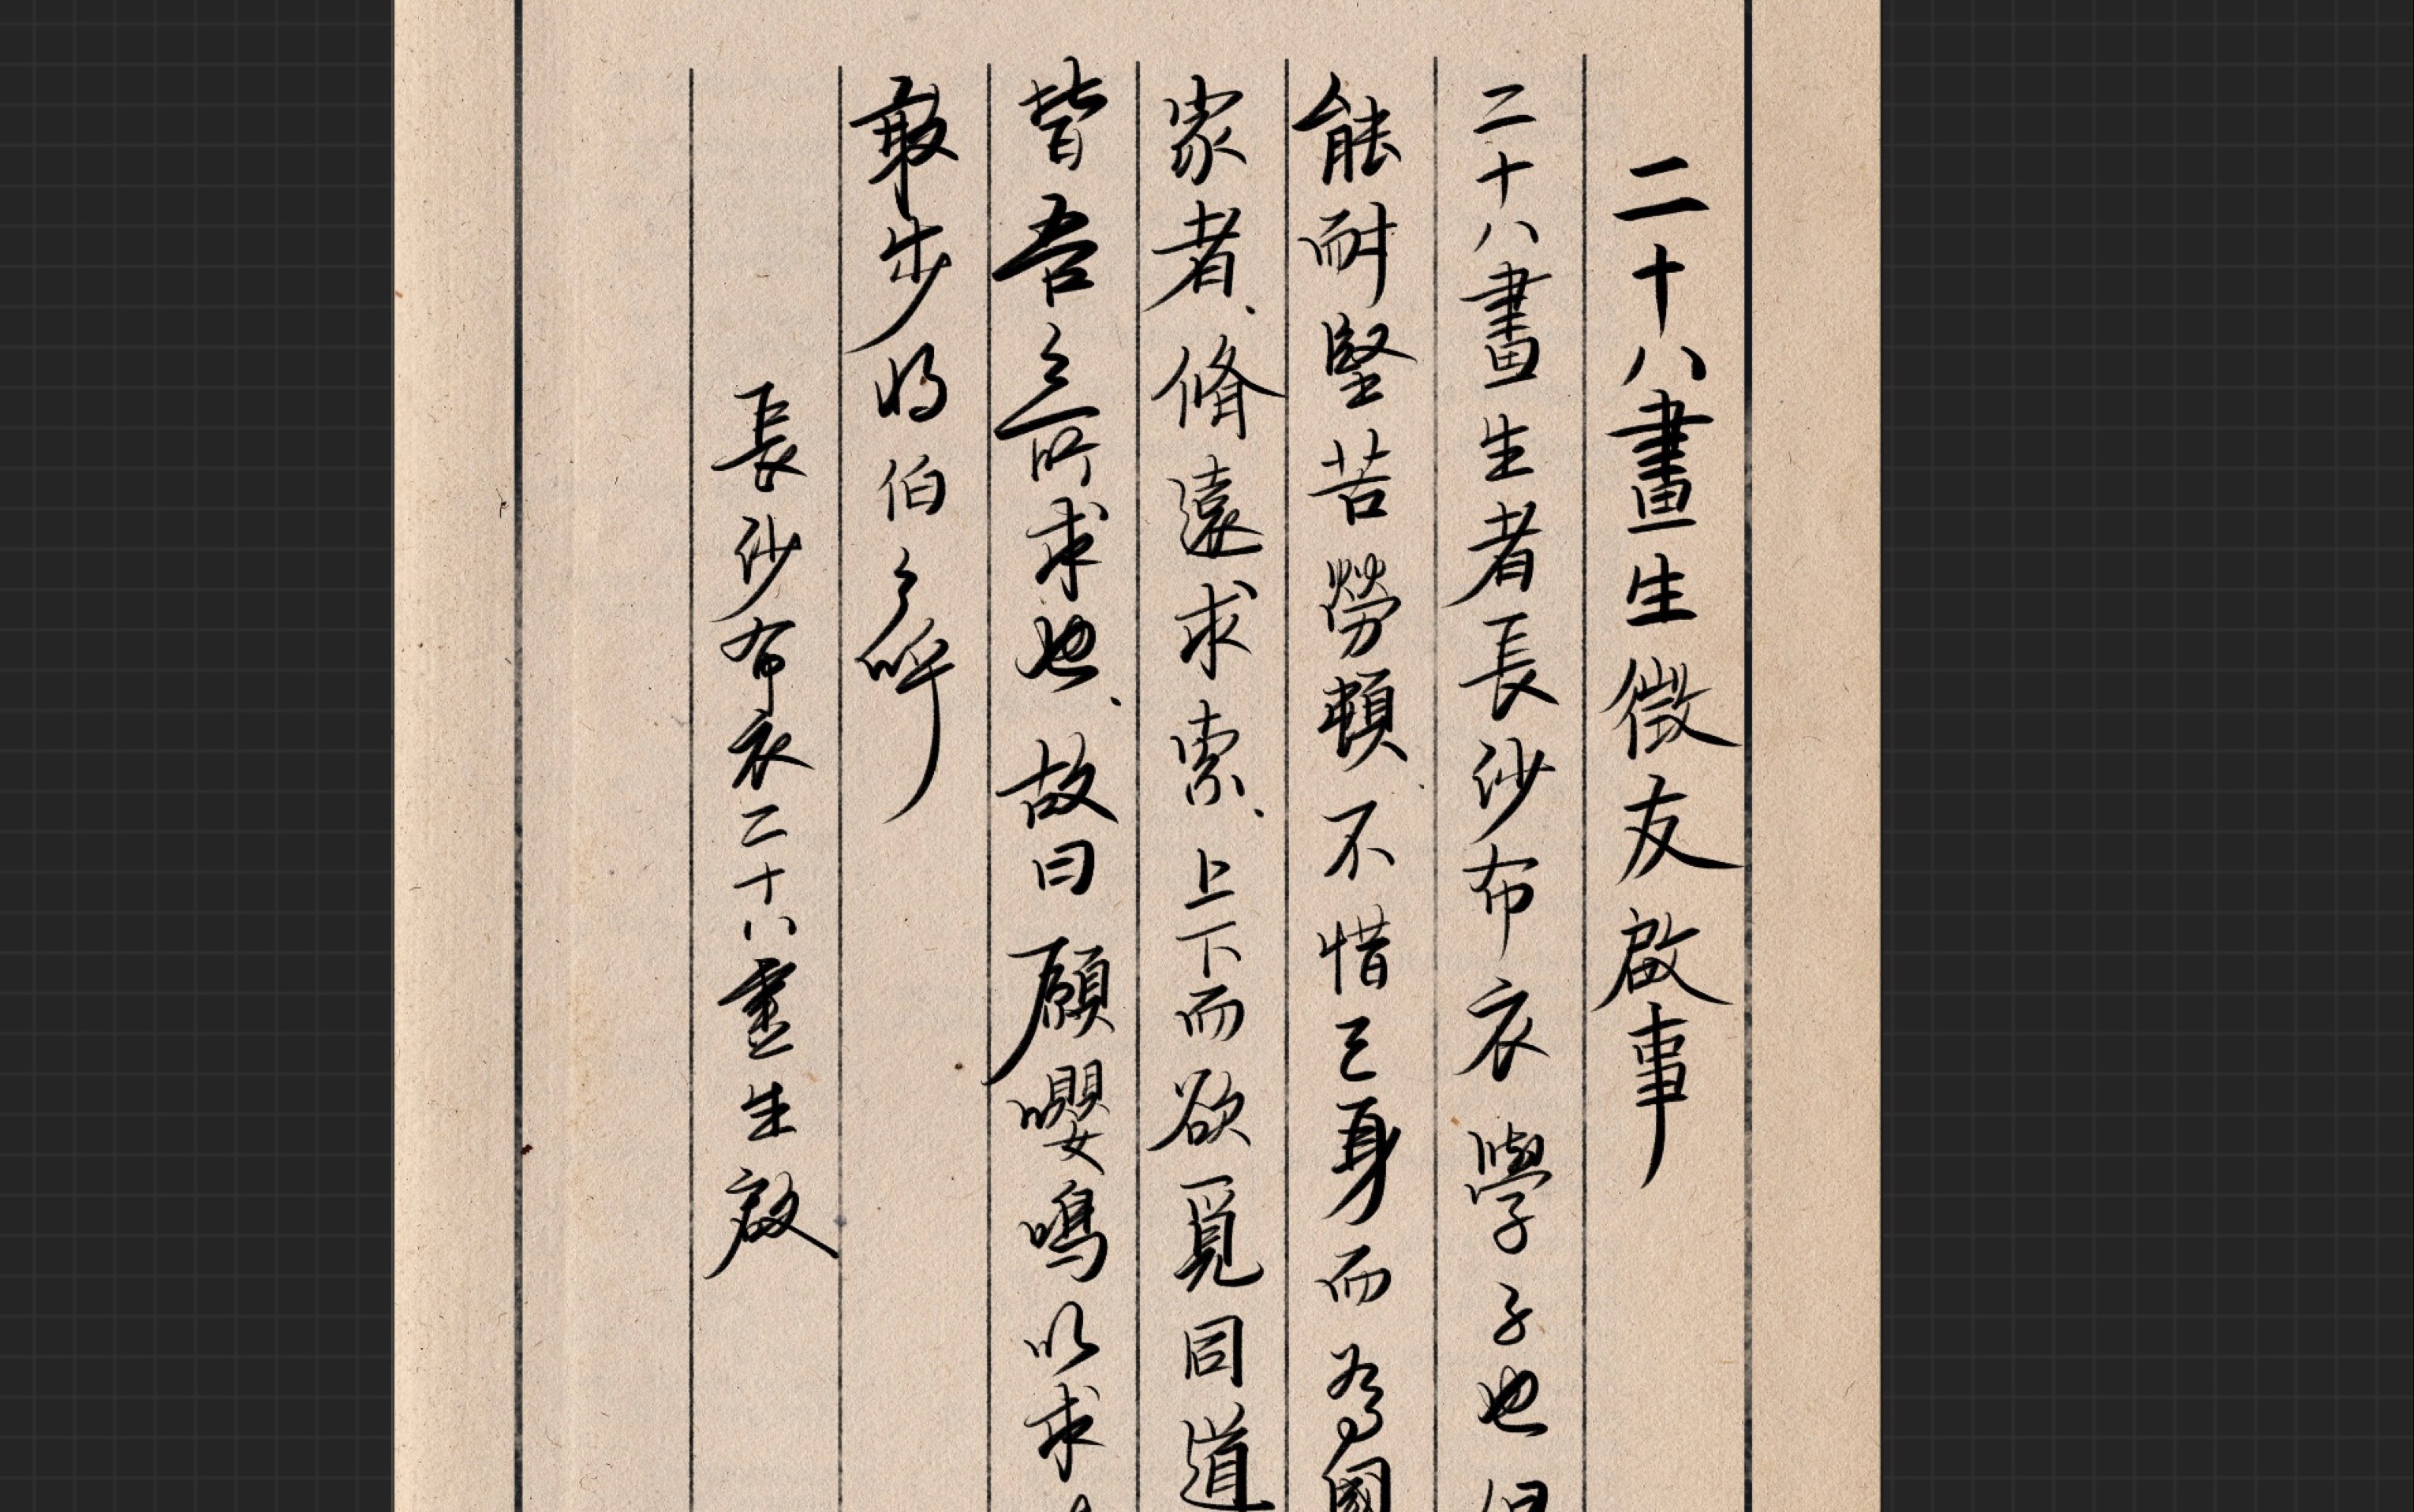 二十八畫生徵友啟事
二十八畫生者長沙布衣學子也但
能耐堅苦勞頓不惜己身而為國
家者、脩遠求索、上下而欲覓同道
皆吾之所求也、故曰願嚶鳴以求
敢步將伯之呼
長沙布衣二十八畫生啟